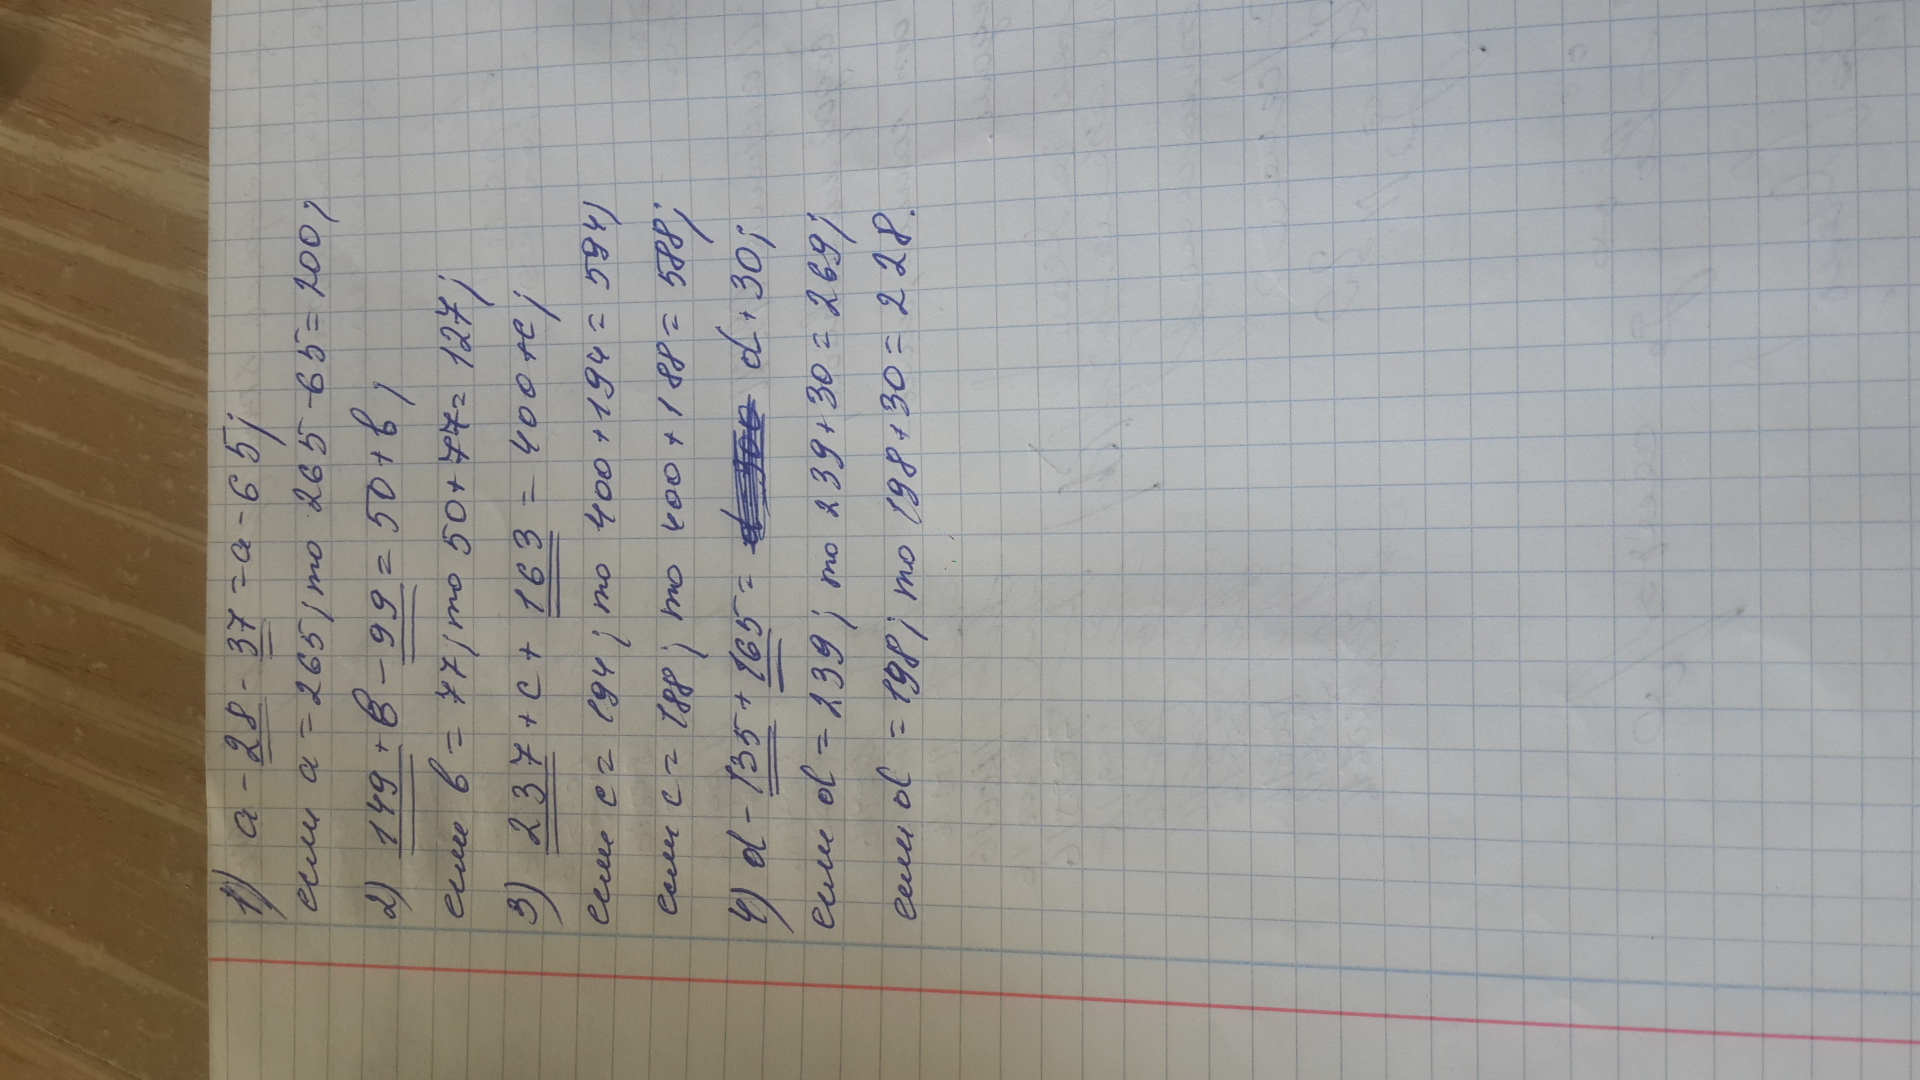 1) a - 28 - 37 = a - 65;
если a = 265, то 265 - 65 = 200;
2) 149 + в - 99 = 50 + в;
если в = 77, то 50 + 77 = 127;
3) 237 + c + 163 = 400 + c;
если c = 194, то 400 + 194 = 594;
если c = 188, то 400 + 188 = 588;
4) d - 135 + 165 = d + 30;
если d = 239, то 239 + 30 = 269;
если d = 198, то 198 + 30 = 228.